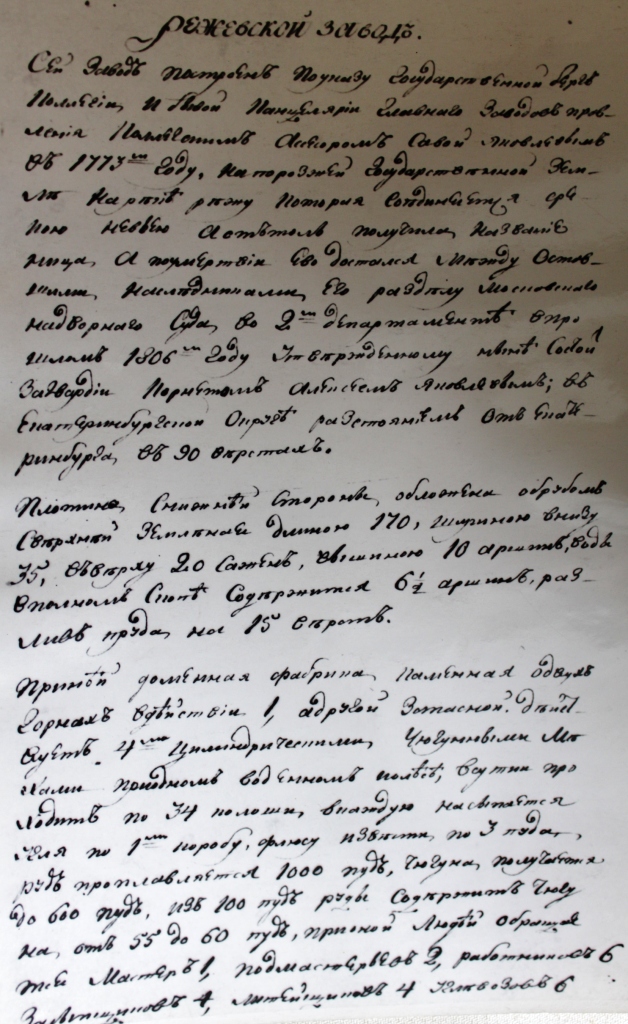 Режевской заводъ.
Сей Заводъ построенъ по указу Государственной Бергъ
Коллегіи, и бывой Канцеляріи Главнаго Заводовъ прав-
ленія Коллежскимъ Асесоромъ Савой Яковлевымъ
въ 1773мъ Году, на порозжей Государственной Зем-
лѣ на рѣкѣ режу которая соединяется съ рѣ-
кою Невьею
А по смерти Его достался между Остав-
шими, наслѣдниками, Его раздѣлу Московскаго
надворнаго Суда, во 2мъ департаментѣ в про
шломъ 1806мъ Году Утвержденному
Гвардіи Корнетомъ Алексеемъ Яковлевымъ; въ
Екатеринбургской Округѣ разстояніемъ отъ Екате-
ринбурга, въ 90 верстахъ.
Плотина, с нижнѣй стороны, обложена обрубомъ
Свѣрхъ Землянаи длиною 170, шириною внизу
35, въ верху 20 сажень, вышиною 10 аршинъ, воды
в полномъ Скопѣ Содержится 6½ аршинъ, раз-
ливъ пруда, на 15 верстъ.
При ней доменная фабрика, Каменная о двухъ
Горнахъ въ дѣйствіи 1, а другой Запасной. дѣйст-
вуетъ. 4мя Цилиндрическими, Чугунными мѣ
хами при одномъ водяномъ колесѣ, в сутки про
ходитъ по 34 колоши, в каждую насыпается
угля по 1му коробу, флюсу извести, по 3 пуда,
рудъ проплавляется 1000 пудъ, Чугуна, получается
до 600 пудъ, изъ 100 пудъ руды Содержитъ Чугу
на, отъ 55 до 60 пудъ, при оной Людей обраща
тся Мастеръ 1, Подмастерьевъ 2, работниковъ 6
Засыпщиковъ 4, Литейщиковъ 4 Углевозовъ 6